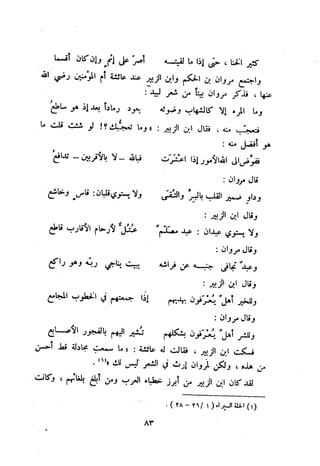 كثير الخنا ، حتى إذا ما لقيتـــه أصرّ على إثم وإن كان أقسما
واجتمع مروان بن الحكم وابن الزبير عند عائشة أم المؤمنين رضي الله
عنها ، فذكر مروان بيتاً من شعر لبيد :
وما المرء إلا كالشهاب وضوئه يعود رماداً بعد إذ هو ساطعُ
فتعجب منه ، فقال ابن الزبير : « وما تعجبك ؟! لو شئت قلت ما
هو أفضل منه :
ففوّض إلى الله الأمور إذا اعترت فبالله – لا بالأقربين – تدافعُ
قال مروان :
وداوِ ضمير القلب بالبرّ والتقى ولا يستوي قلبان : قاسٍ وخاشع
وقال ابن الزبير :
ولا يستوي عبدان : عبد مصلّم عتلّ لأرحام الأقارب قاطع
وقال مروان :
وعبد تجافى جنبــه عن فراشه يبيت يناجي ربّه وهو راكع
وقال ابن الزبير :
وللخير أهل يُعرَفون بهديهم إذا جمعتهم في الخطوب المجامع
وقال مروان :
وللشر أهل يُعرَفون بشكلهم تُشير اليهم بالفجور الأصـــابع
فسكت ابن الزبير ، فقالت له عائشة : « ما سمعت مجادلة قط أحسن
من هذه ، ولكن لمروان إرث في الشعر ليس لك »(١) .
لقد كان ابن الزبير من أبرز خطباء العرب ومن أبلغ بلغائهم ، وكانت
(١) الحلة السيراء ( ١ / ٢٦ – ٢٨ ) .
٨٣